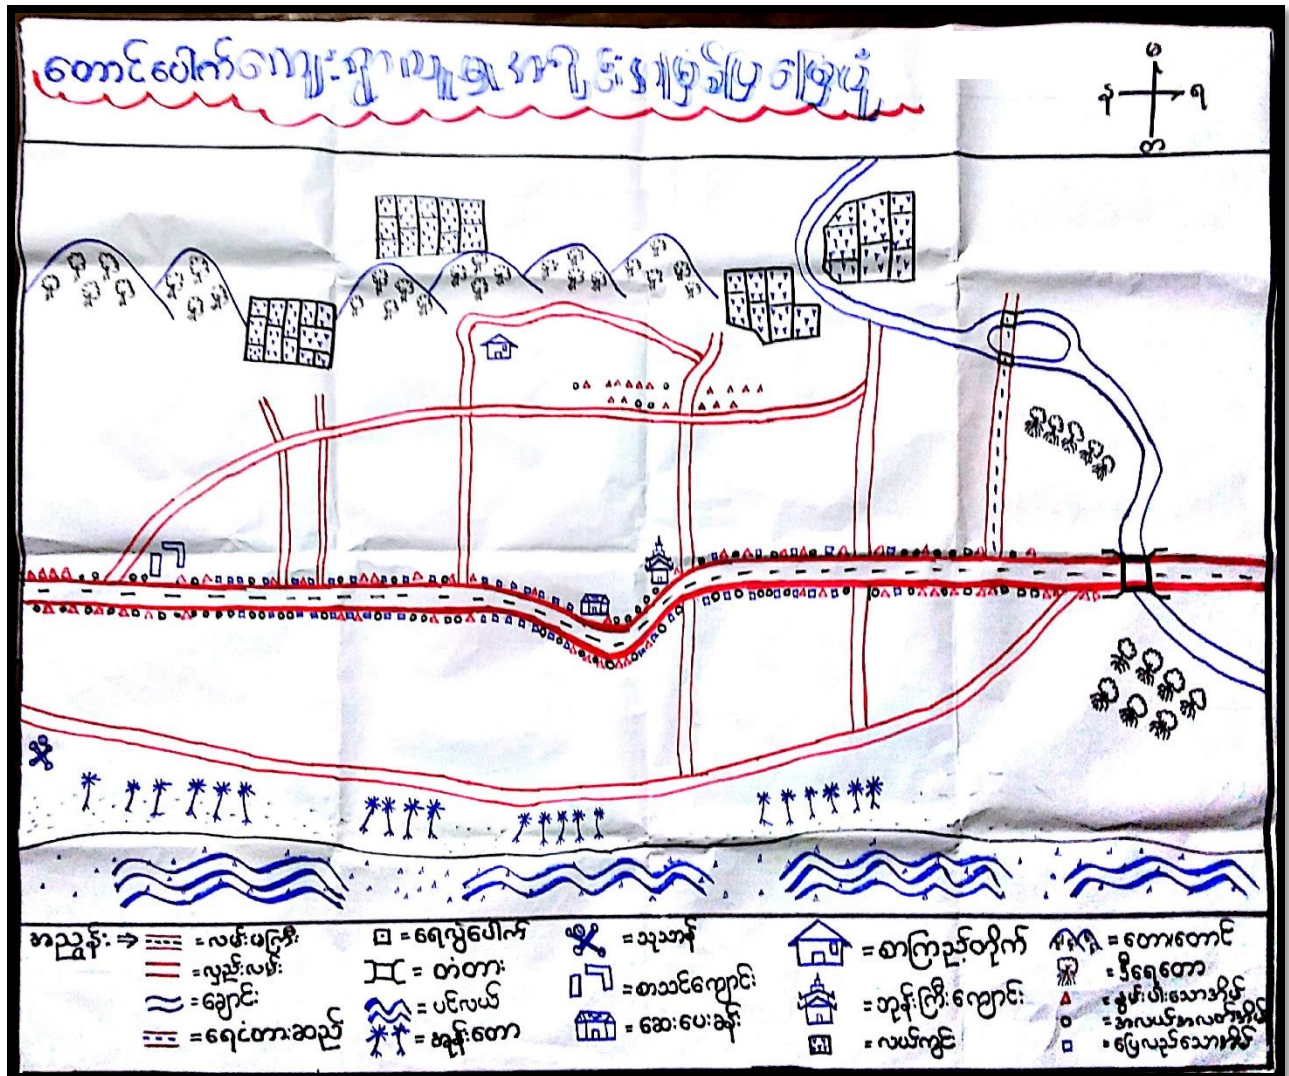 တောင်ပေါက်ကျေးရွာလူမှုအရင်းအမြစ်ပြမြေပုံ
မ
န
ရ
တ
အညွှန်း ⇒
= လမ်းမကြီး
= လှည်းလမ်း
= ချောင်း
= ရေငံတားဆည်
= ရေလွှဲပေါက်
= တံတား
= ပင်လယ်
= အုန်းတော
= သုသာန်
= စာသင်ကျောင်း
= ဆေးပေးခန်း
= စာကြည့်တိုက်
= ဘုန်းကြီးကျောင်း
= လယ်ကွင်း
= တောတောင်
= ဒီရေတော
= နွမ်းပါးသောအိမ်
= အလယ်အလတ်အိမ်
= ပြေလည်သောအိမ်